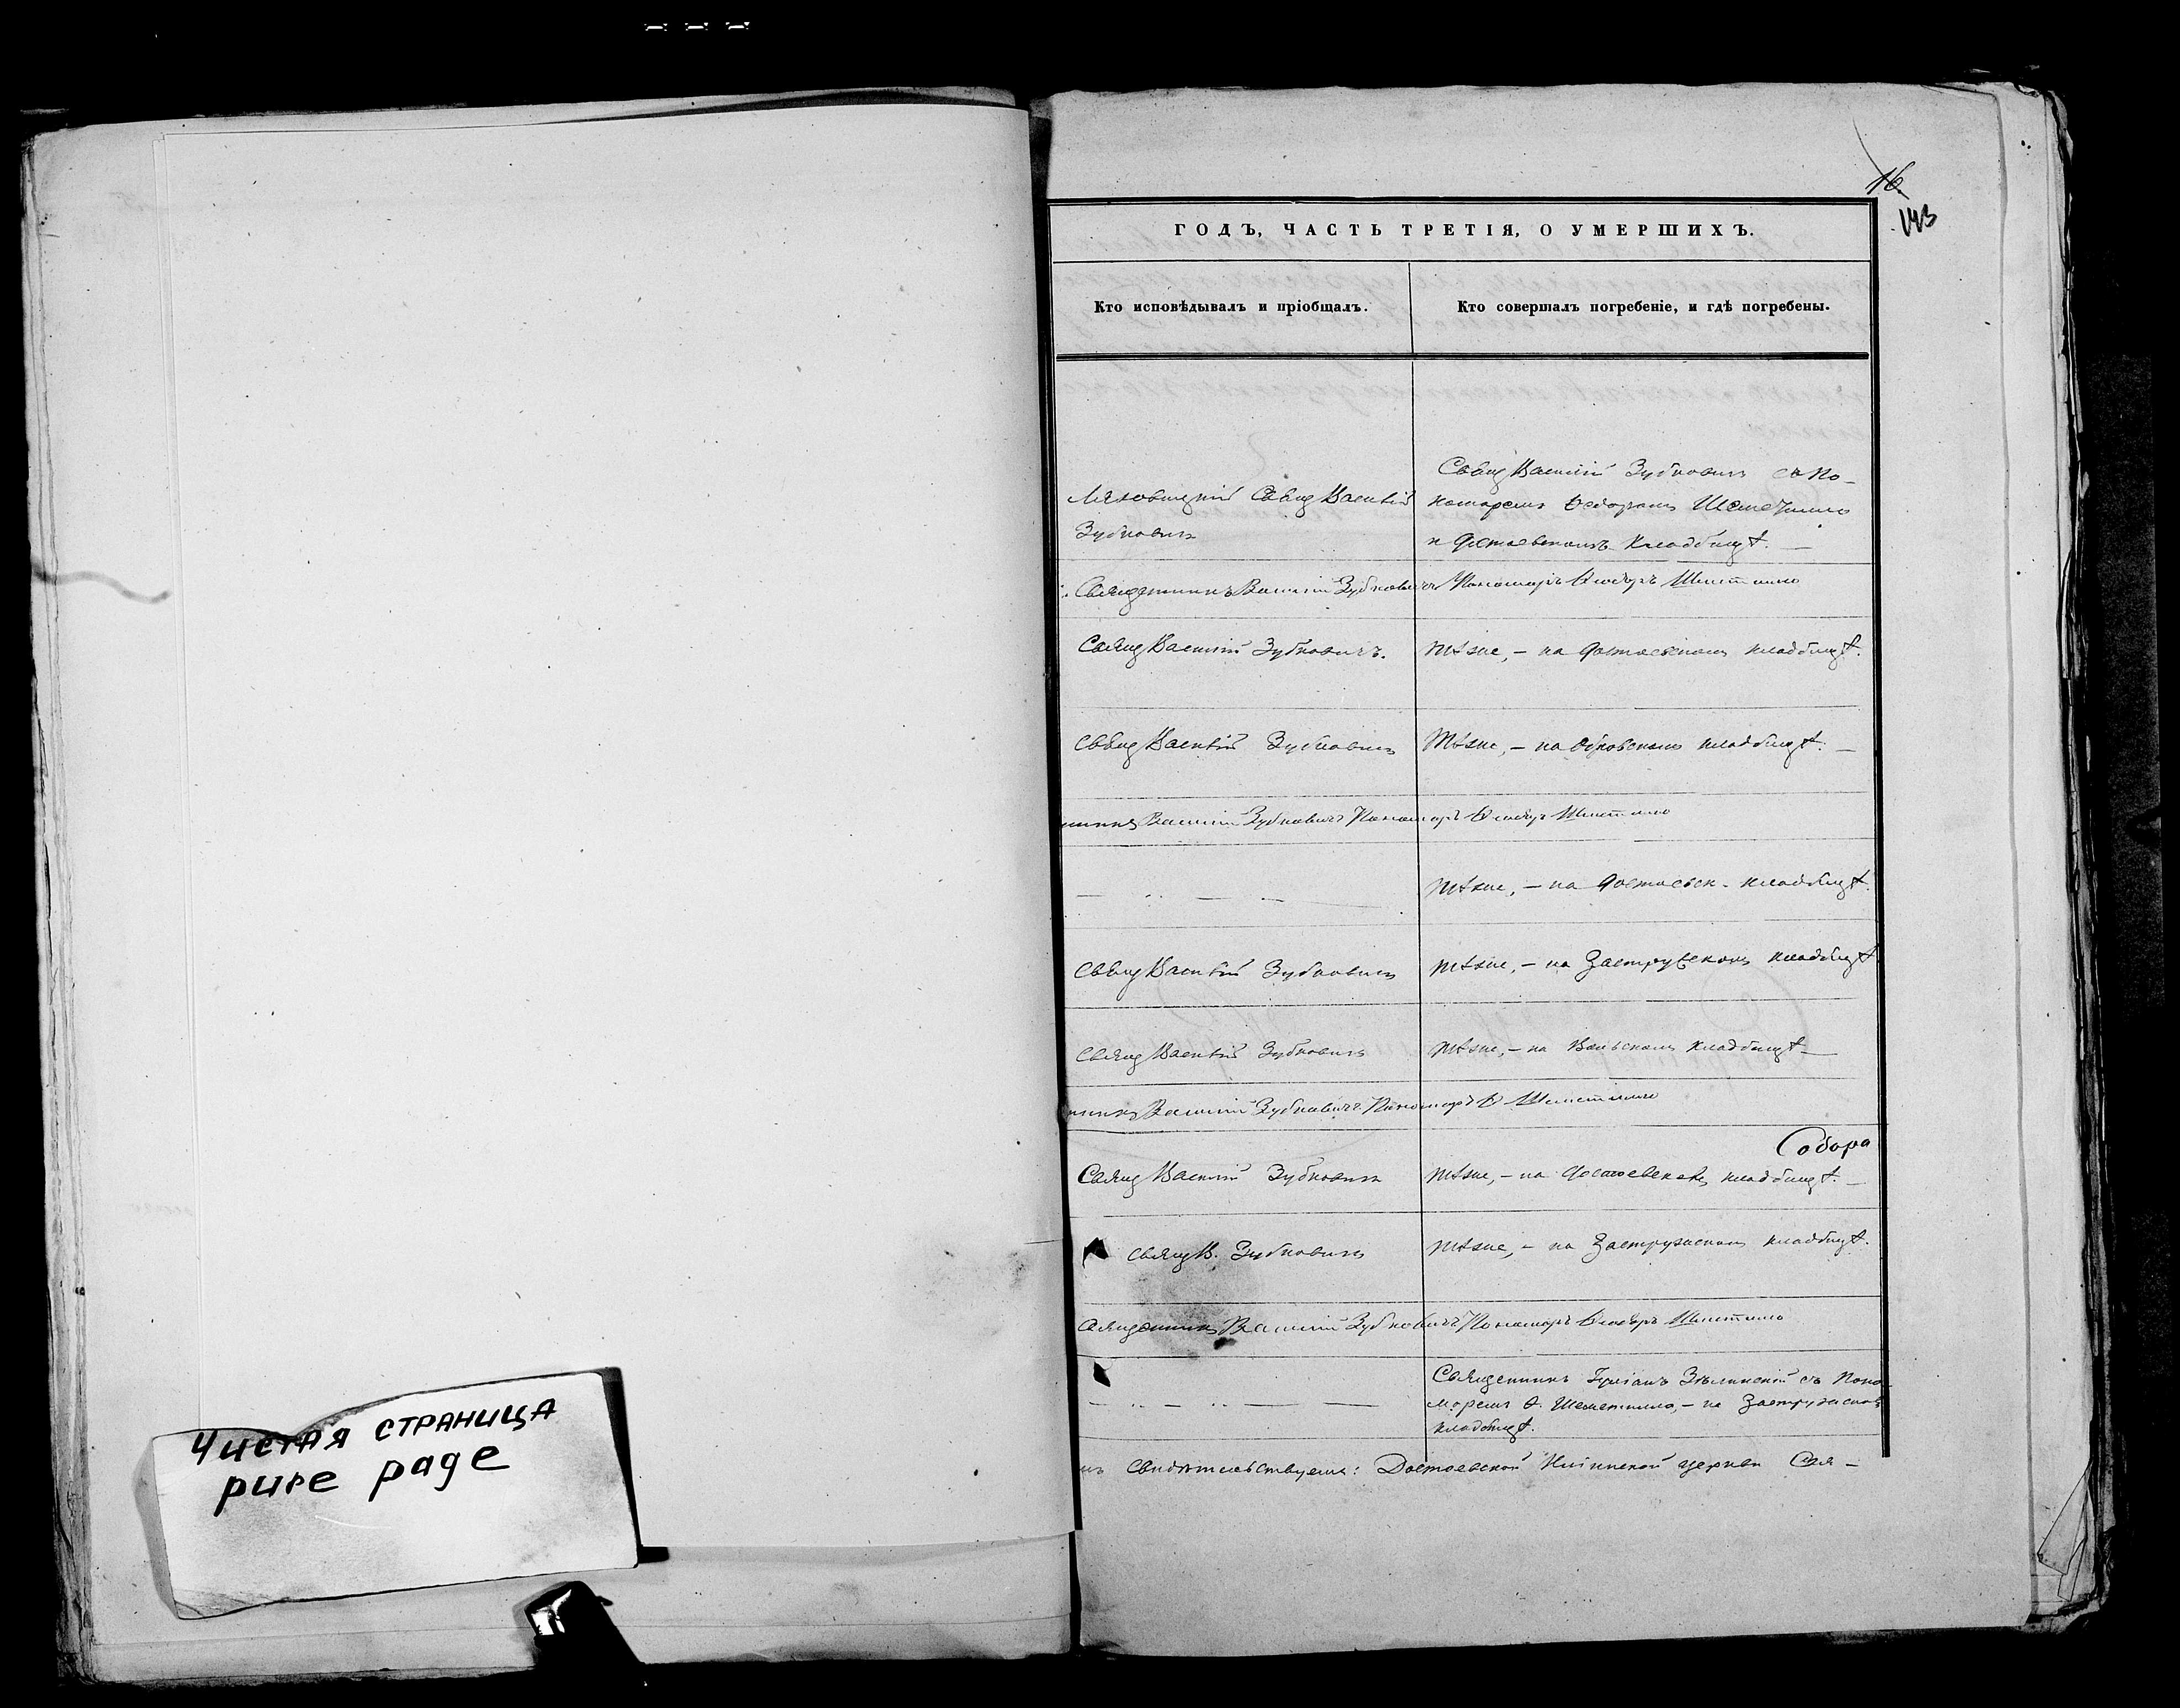 Чистая страница
pure page
16
143
ГОДЪ, ЧАСТЬ ТРЕТІЯ, О УМЕРШИХЪ.
Кто исповѣдывалъ и пріобщалъ.
Кто совершалъ погребеніе, и гдѣ погребены.
Свящ Василій
Зубковичъ
Свящ Василій Зубковичъ съ По-
номаремъ Ѳеодоромъ
Достоевскомъ кладбищѣ. —
Священникъ Василій Зубковичъ Пономарь Ѳеодоръ
Свящ Василій Зубковичъ.
тѣже, — на Достоевскомъ кладбищѣ.
Свящ Василій Зубковичъ
Тѣже, — на кладбищѣ. —
Василій Зубковичъ Пономарь Ѳеодоръ
тѣже, — на Достоевск. кладбищѣ.
Свящ Василій Зубковичъ
тѣже, — на кладбищѣ
Свящ Василій Зубковичъ
тѣже, — на кладбищѣ —
Василій Зубковичъ Пономарь Ѳ
Собора
Свящ Василій Зубковичъ
тѣже, — на кладбищѣ. —
Свящ В. Зубковичъ
тѣже, — на Застружскомъ кладбищѣ.
Священникъ Василій Зубковичъ Пономарь Ѳеодоръ
Священникъ съ Поно-
маремъ Ѳ. — на
кладбищѣ.
свидѣтельствуемъ: Достоевской церкви Свя-